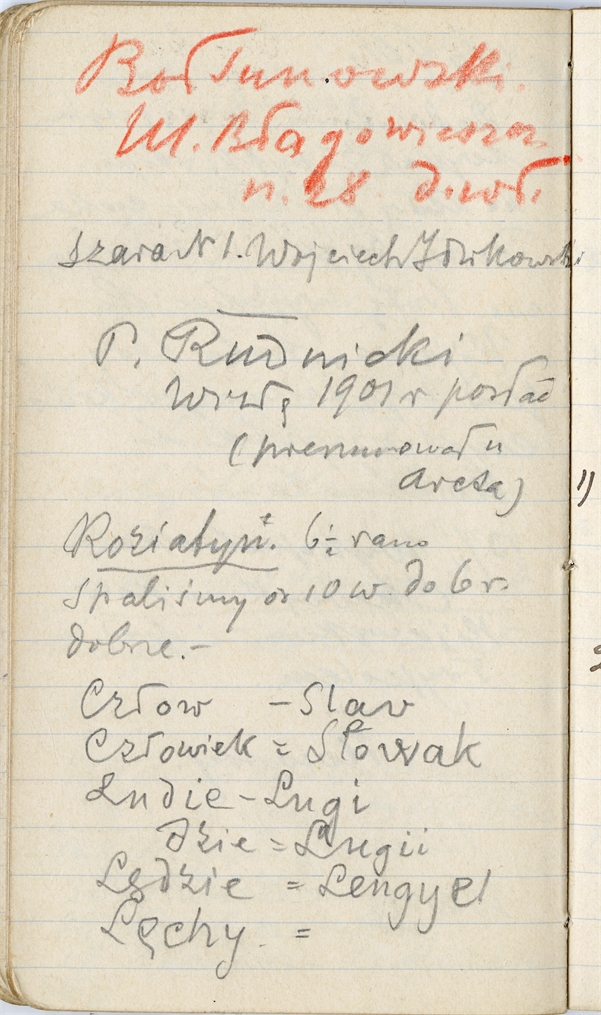 Bołtunowski.
Ul. Błagowieszcz.
n. 28 d. wł.
Szara N 1. Wojciech Idzikowski
P. Rudnicki
Wisłę 1901 r posłać
(prenumerował u
Arcta)
Roziatyń. 6½ rano
Spaliśmy od 10 w. do 6 r.
dobrze.-
Człow - Slav
Człowiek = Słowak
Ludie - Lugi
dzie = Lugii
Lędzie = Lengyel
Lęchy =